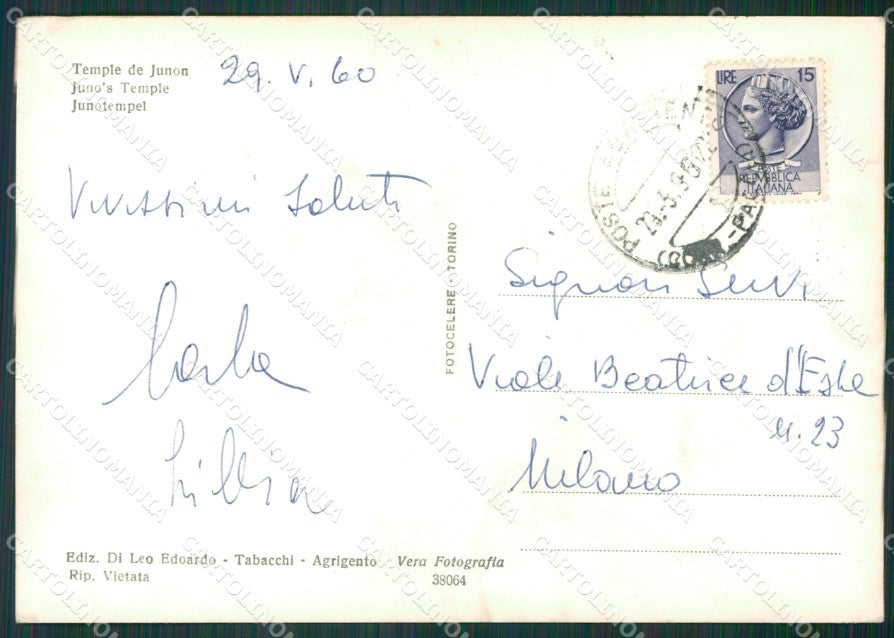 Temple de Junon
Juno's Temple
Junotempel
29. V. 60
LIRE 15
POSTE
REPUBBLICA
ITALIANA
POSTE
Vivissimi Saluti
Carla
Silvia
FOTOCELERE - TORINO
Signori Servi
Viale Beatrice d'Este
n. 23
Milano
Ediz. Di Leo Edoardo - Tabacchi - Agrigento - Vera Fotografia
Rip. Vietata
38064
CARTOLINOMANIA